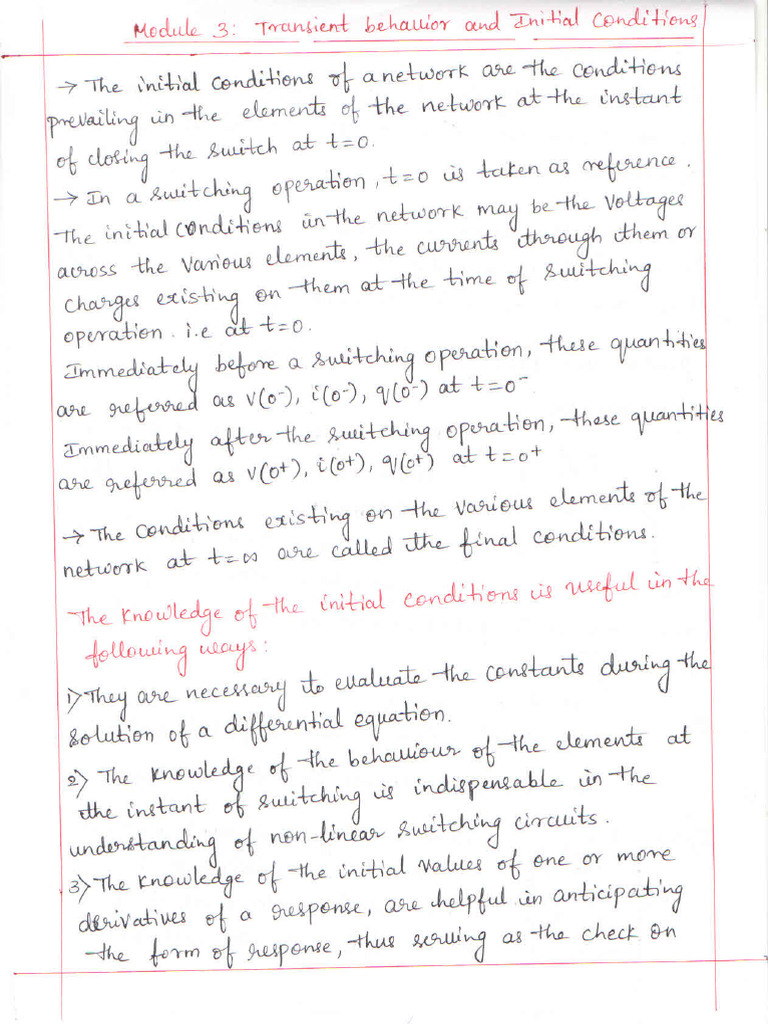 Module 3: Transient behavior and Initial Conditions
→ The initial conditions of a network are the conditions
prevailing in the elements of the network at the instant
of closing the switch at t=0.
→ In a switching operation, t=0 is taken as reference.
The initial conditions in the network may be the voltages
across the various elements, the currents through them or
charges existing on them at the time of switching
operation. i.e at t=0.
Immediately before a switching operation, these quantities
are referred as v(0⁻), i(0⁻), q(0⁻) at t=0⁻
Immediately after the switching operation, these quantities
are referred as v(0⁺), i(0⁺), q(0⁺) at t=0⁺
→ The conditions existing on the various elements of the
network at t=∞ are called the final conditions.
The knowledge of the initial conditions is useful in the
following ways:
1) They are necessary to evaluate the constants during the
solution of a differential equation.
2) The knowledge of the behaviour of the elements at
the instant of switching is indispensable in the
understanding of non-linear switching circuits.
3) The knowledge of the initial values of one or more
derivatives of a response, are helpful in anticipating
the form of response, thus serving as the check on